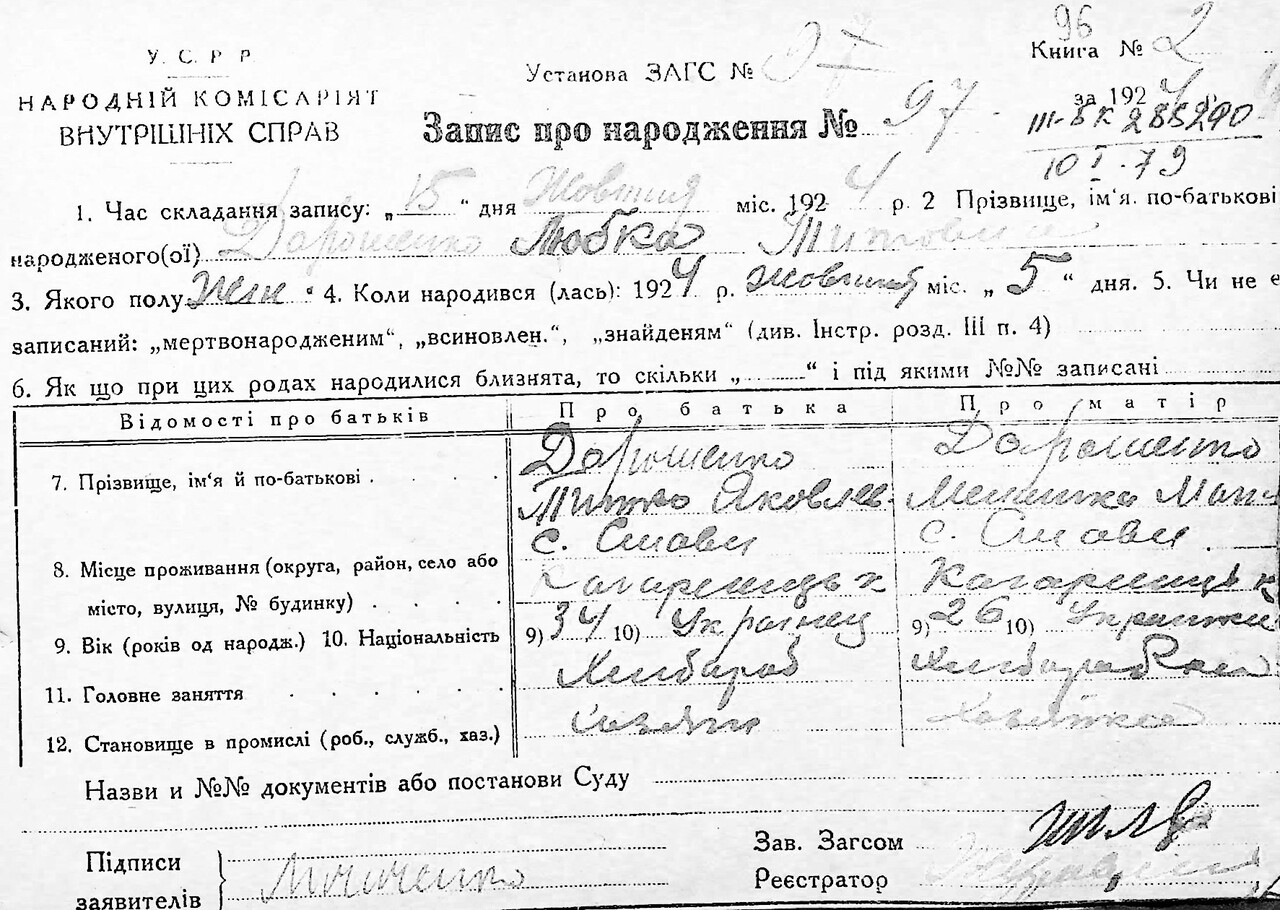 96
У. С. Р. Р.
Книга № 2
Установа ЗАГС № 97
НАРОДНІЙ КОМІСАРІЯТ
за 1924 р.
ВНУТРІШНІХ СПРАВ
Запис про народження № 97
III-БК 285290
10 I-79
1. Час складання запису: „15“ дня Жовтня міс. 1924 р. 2 Прізвище, ім'я. по-батькові
народженого(ої) Дорошенко Любка Титовна
3. Якого полу Жін. 4. Коли народився (лась): 1924 р. Жовтня міс. „5“ дня. 5. Чи не є
записаний: „мертвонародженим“, „всиновлен.“, „знайденям“ (див. Інстр. розд. III п. 4)
6. Як що при цих родах народилися близнята, то скільки „ “ і під якими №№ записані
Відомості про батьків Про батька Про матір
7. Прізвище, ім'я й по-батькові Дорошенко Дорошенко
Яковлев.
с. с.
8. Місце проживання (округа, район, село або Кагарлицьк Кагарлицьк
місто, вулиця, № будинку)
9. Вік (років од народж.) 10. Національність 9) 34 10) Українец 9) 26 10) Українка
11. Головне заняття Хлібароб
12. Становище в промислі (роб., служб., хаз.) Хазяїн Хазяйка
Назви и №№ документів або постанови Суду
Підписи
заявителів
Зав. Загсом
Реєстратор